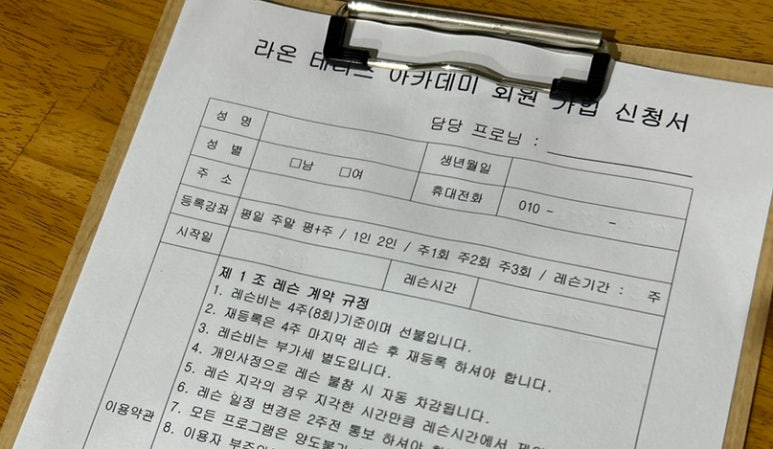 라온 아카데미 회원 가입 신청서
담당 프로님 :
성 명
생년월일
성 별 □남 □여
휴대전화 010 - -
주 소
등록강좌 평일 주말 평+주 / 1인 2인 / 주1회 주2회 주3회 / 레슨기간 : 주
시작일 레슨시간
이용약관
제 1 조 레슨 계약 규정
1. 레슨비는 4주(8회)기준이며 선불입니다.
2. 재등록은 4주 마지막 레슨 후 재등록 하셔야 합니다.
3. 레슨비는 부가세 별도입니다.
4. 개인사정으로 레슨 불참 시 자동 차감됩니다.
5. 레슨 지각의 경우 지각한 시간만큼 레슨시간에서
6. 레슨 일정 변경은 2주전 통보 하셔야
7. 모든 프로그램은 양도불가
8. 이용자